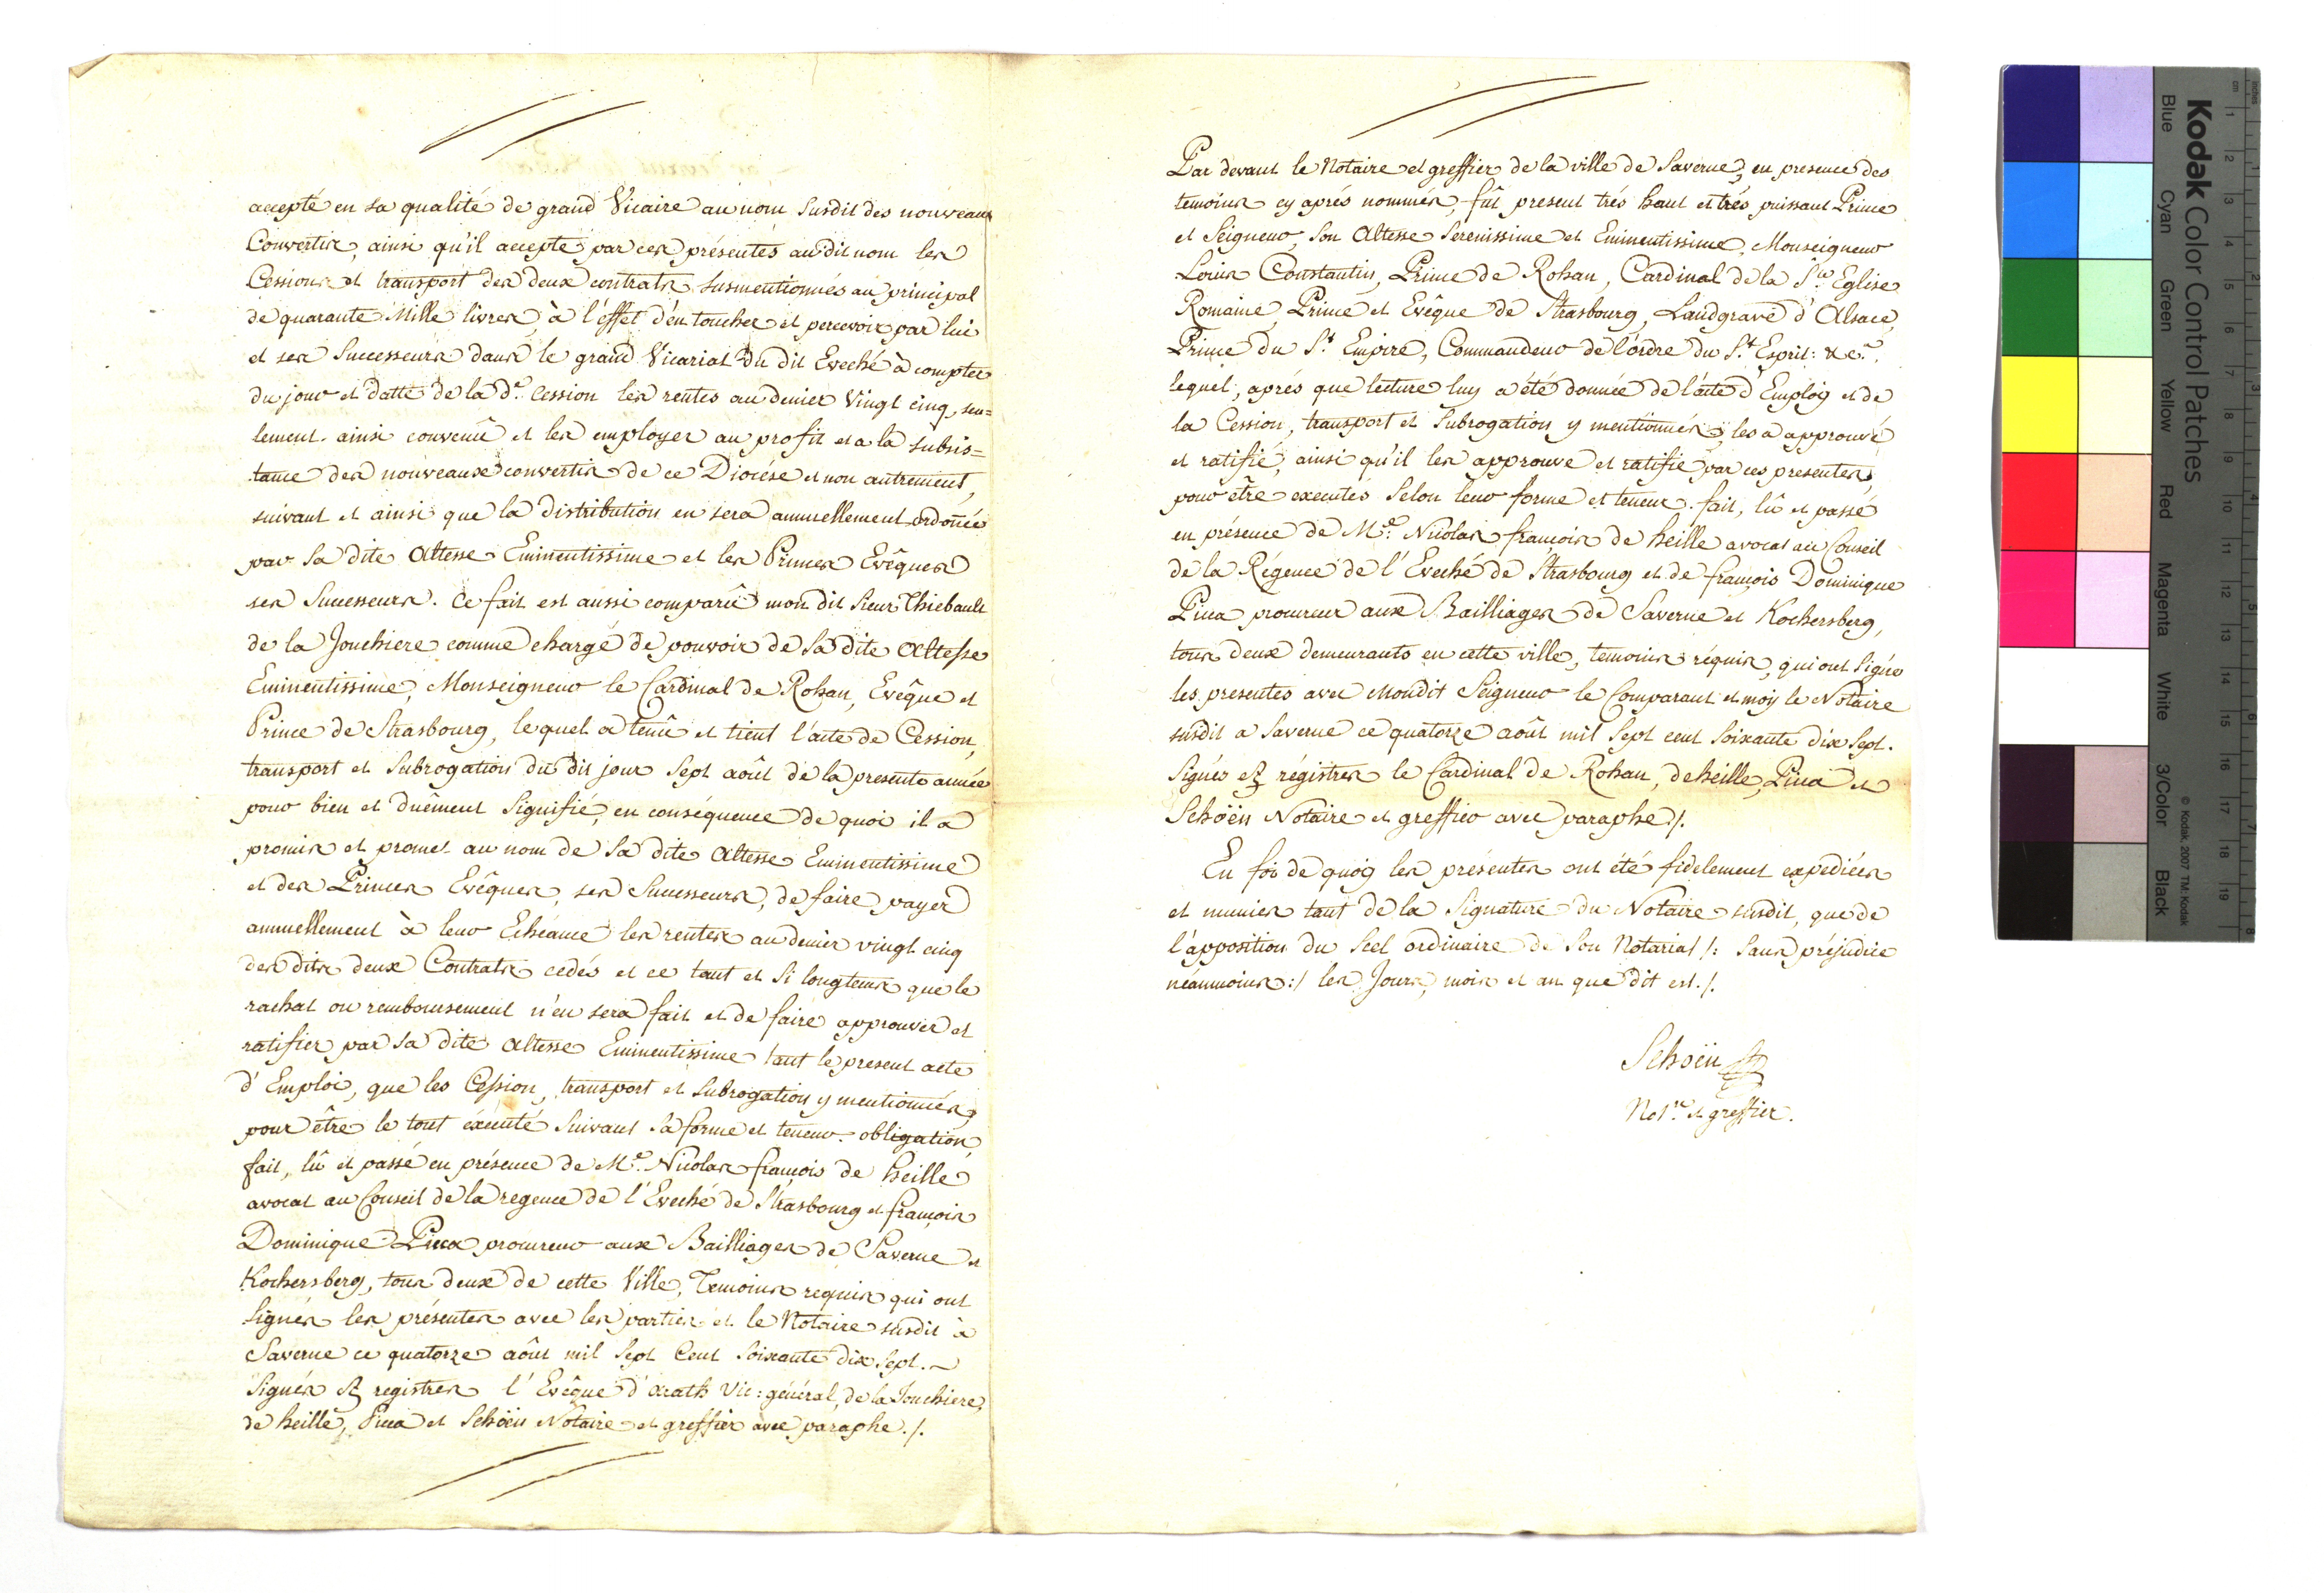 accepté en sa qualité de grand Vicaire au nom Susdit des nouveaux
Convertis, ainsi qu'il accepte par ces présentes au dit nom les
Cession et transport des deux contrats susmentionnés au principal
de quarante Mille livres, à l'éffet d'en toucher et percevoir par lui
et ses Successeurs dans le grand Vicariat du dit Eveché à compter
du jour et datte de la d.e Cession les rentes au denier Vingt cinq, seu=
lement. ainsi convenû et les employer au profit et a la subsis=
tance des nouveaux convertis de ce Diocése et non autrement,
suivant et ainsi que la distribution en sera annuellement ordonnée
par Sa dite Altesse Eminentissime et les Princes Evêques
ses Successeurs. Ce fait est aussi comparû mon dit Sieur Thiebault
de la Jouchiere comme chargé de pouvoir de Sa dite Altesse
Eminentissime, Monseigneur le Cardinal de Rohan, Evêque et
Prince de Strasbourg, lequel a tenû et tient l'acte de Cession,
transport et Subrogation du dit jour Sept août de la presente année
pour bien et duêment Signifié, en conséquence de quoi il a
promis et promet au nom de Sa dite Altesse Eminentissime
et des Princes Evêques, ses Successeurs, de faire payer
annuellement à leur Echéance les rentes au denier vingt cinq
des dits deux Contrats cedés et ce tant et Si longtems que le
rachat ou remboursement n'en sera fait et de faire approuver et
ratifier par Sa dite Altesse Eminentissime tant le present acte
d'Emploi, que les Cession, transport et Subrogation y mentionnés,
pour être le tout éxécuté Suivant Sa forme et teneur. obligation,
fait, lû et passé en présence de M.e Nicolas françois de heille
avocat au Conseil de la regence de l'Eveché de Strasbourg et françois
Dominique Pica procureur aux Bailliages de Saverne et
Kochersberg, tous deux de cette Ville, Temoins requis qui ont
Signés les présentes avec les parties et le Notaire susdit à
Saverne ce quatorze août mil Sept Cent Soixante dix Sept.
Signés et registres l'Evêque d'arath Vic: général, de la Jouchiere,
de heille, Pica et Schöën Notaire et greffier avec paraphe./.
Par devant le Notaire et greffier de la ville de Saverne, en presence des
temoins cy aprés nommés, fût present trés haut et trés puissant Prince
et Seigneur, Son Altesse Serenissime et Eminentissime, Monseigneur
Louis Constantin, Prince de Rohan, Cardinal de la S.te Eglise
Romaine, Prince et Evêque de Strasbourg, Landgrave d'Alsace,
Prince du S.t Empire, Commandeur de l'ordre du S.t Esprit: &c.a.
lequel, aprés que lecture luy a été donnée de l'acte d'Employ et de
la Cession, transport et Subrogation y mentionnés, les a approuvé
et ratifié, ainsi qu'il les approuve et ratifie par ces presentes,
pour être executés Selon leur forme et teneur. fait, lû et passé
en présence de M.e Nicolas françois de heille avocat au Conseil
de la Régence de l'Eveché de Strasbourg et de françois Dominique
Pica procureur aux Bailliages de Saverne et Kochersberg,
tous deux demeurants en cette ville, temoins réquis, qui ont Signé
les presentes avec Mondit Seigneur le Comparant et moy le Notaire
susdit a Saverne ce quatorze août mil Sept cent Soixante dix Sept.
Signés et régistres le Cardinal de Rohan, de heille, Pica et
Schöën Notaire et greffier avec paraphe./.
En foi de quoy les présentes ont été fidelement expediées
et munies tant de la Signature du Notaire susdit, que de
l'apposition du Scel ordinaire de Son Notariat /: Sans préjudice
néanmoins :/ les Jours, mois et an que dit est./.
Schöën
Not.re et greffier.
Kodak Color Control Patches
Blue Cyan Green Yellow Red Magenta White 3/Color Black
© Kodak 2007 TM: Kodak
inches 1 2 3 4 5 6 7 8
cm 1 2 3 4 5 6 7 8 9 10 11 12 13 14 15 16 17 18 19